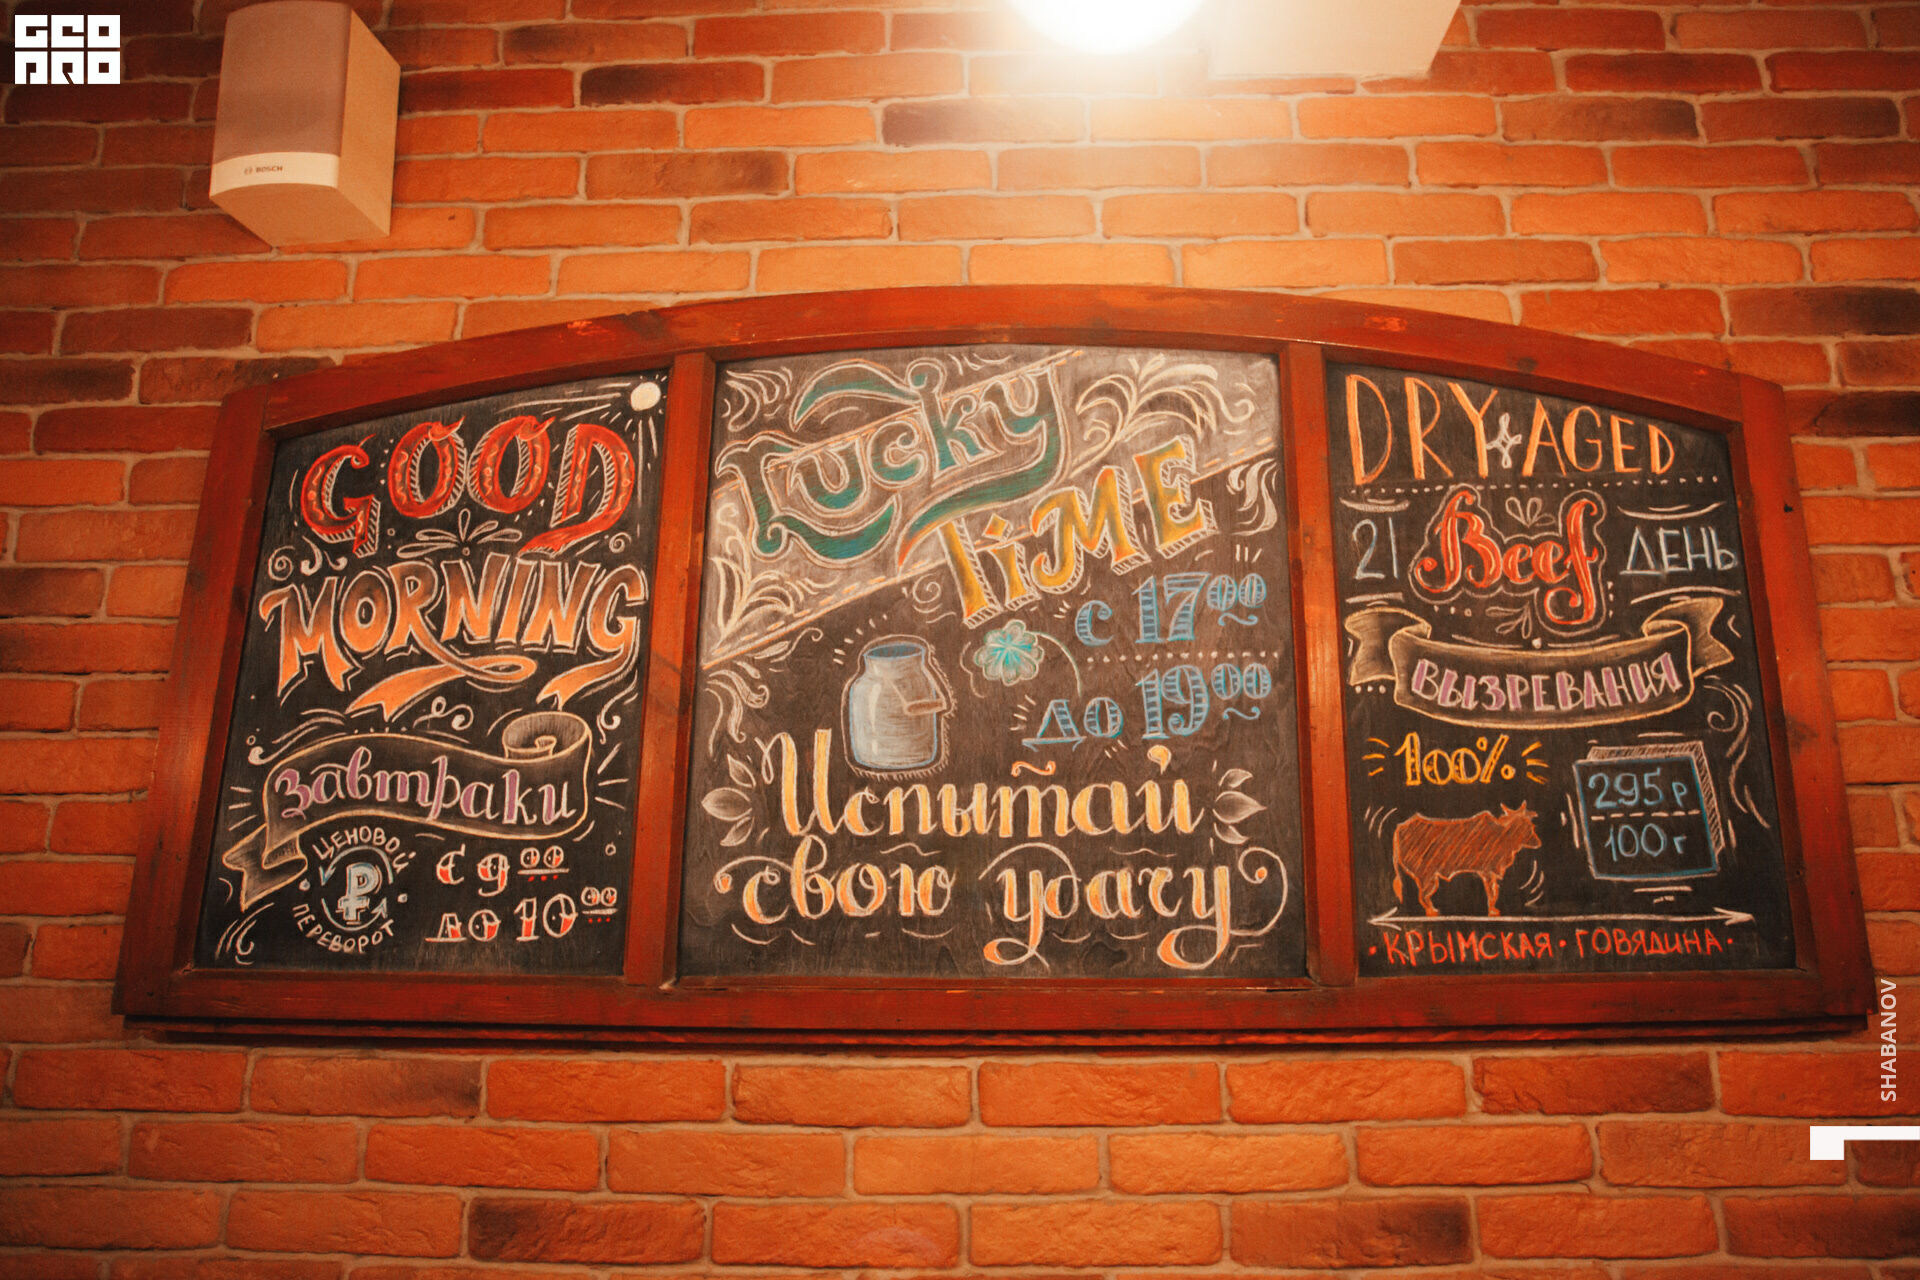 GEO
PRO
BOSCH
GOOD
MORNING
завтраки
ЦЕНОВОЙ
ПЕРЕВОРОТ
с 9⁰⁰
до 10⁰⁰
Lucky
TiME
с 17⁰⁰
до 19⁰⁰
Испытай
свою удачу
DRY AGED
21 Beef ДЕНЬ
ВЫЗРЕВАНИЯ
100%
295 р
100 г
• КРЫМСКАЯ • ГОВЯДИНА •
SHABANOV